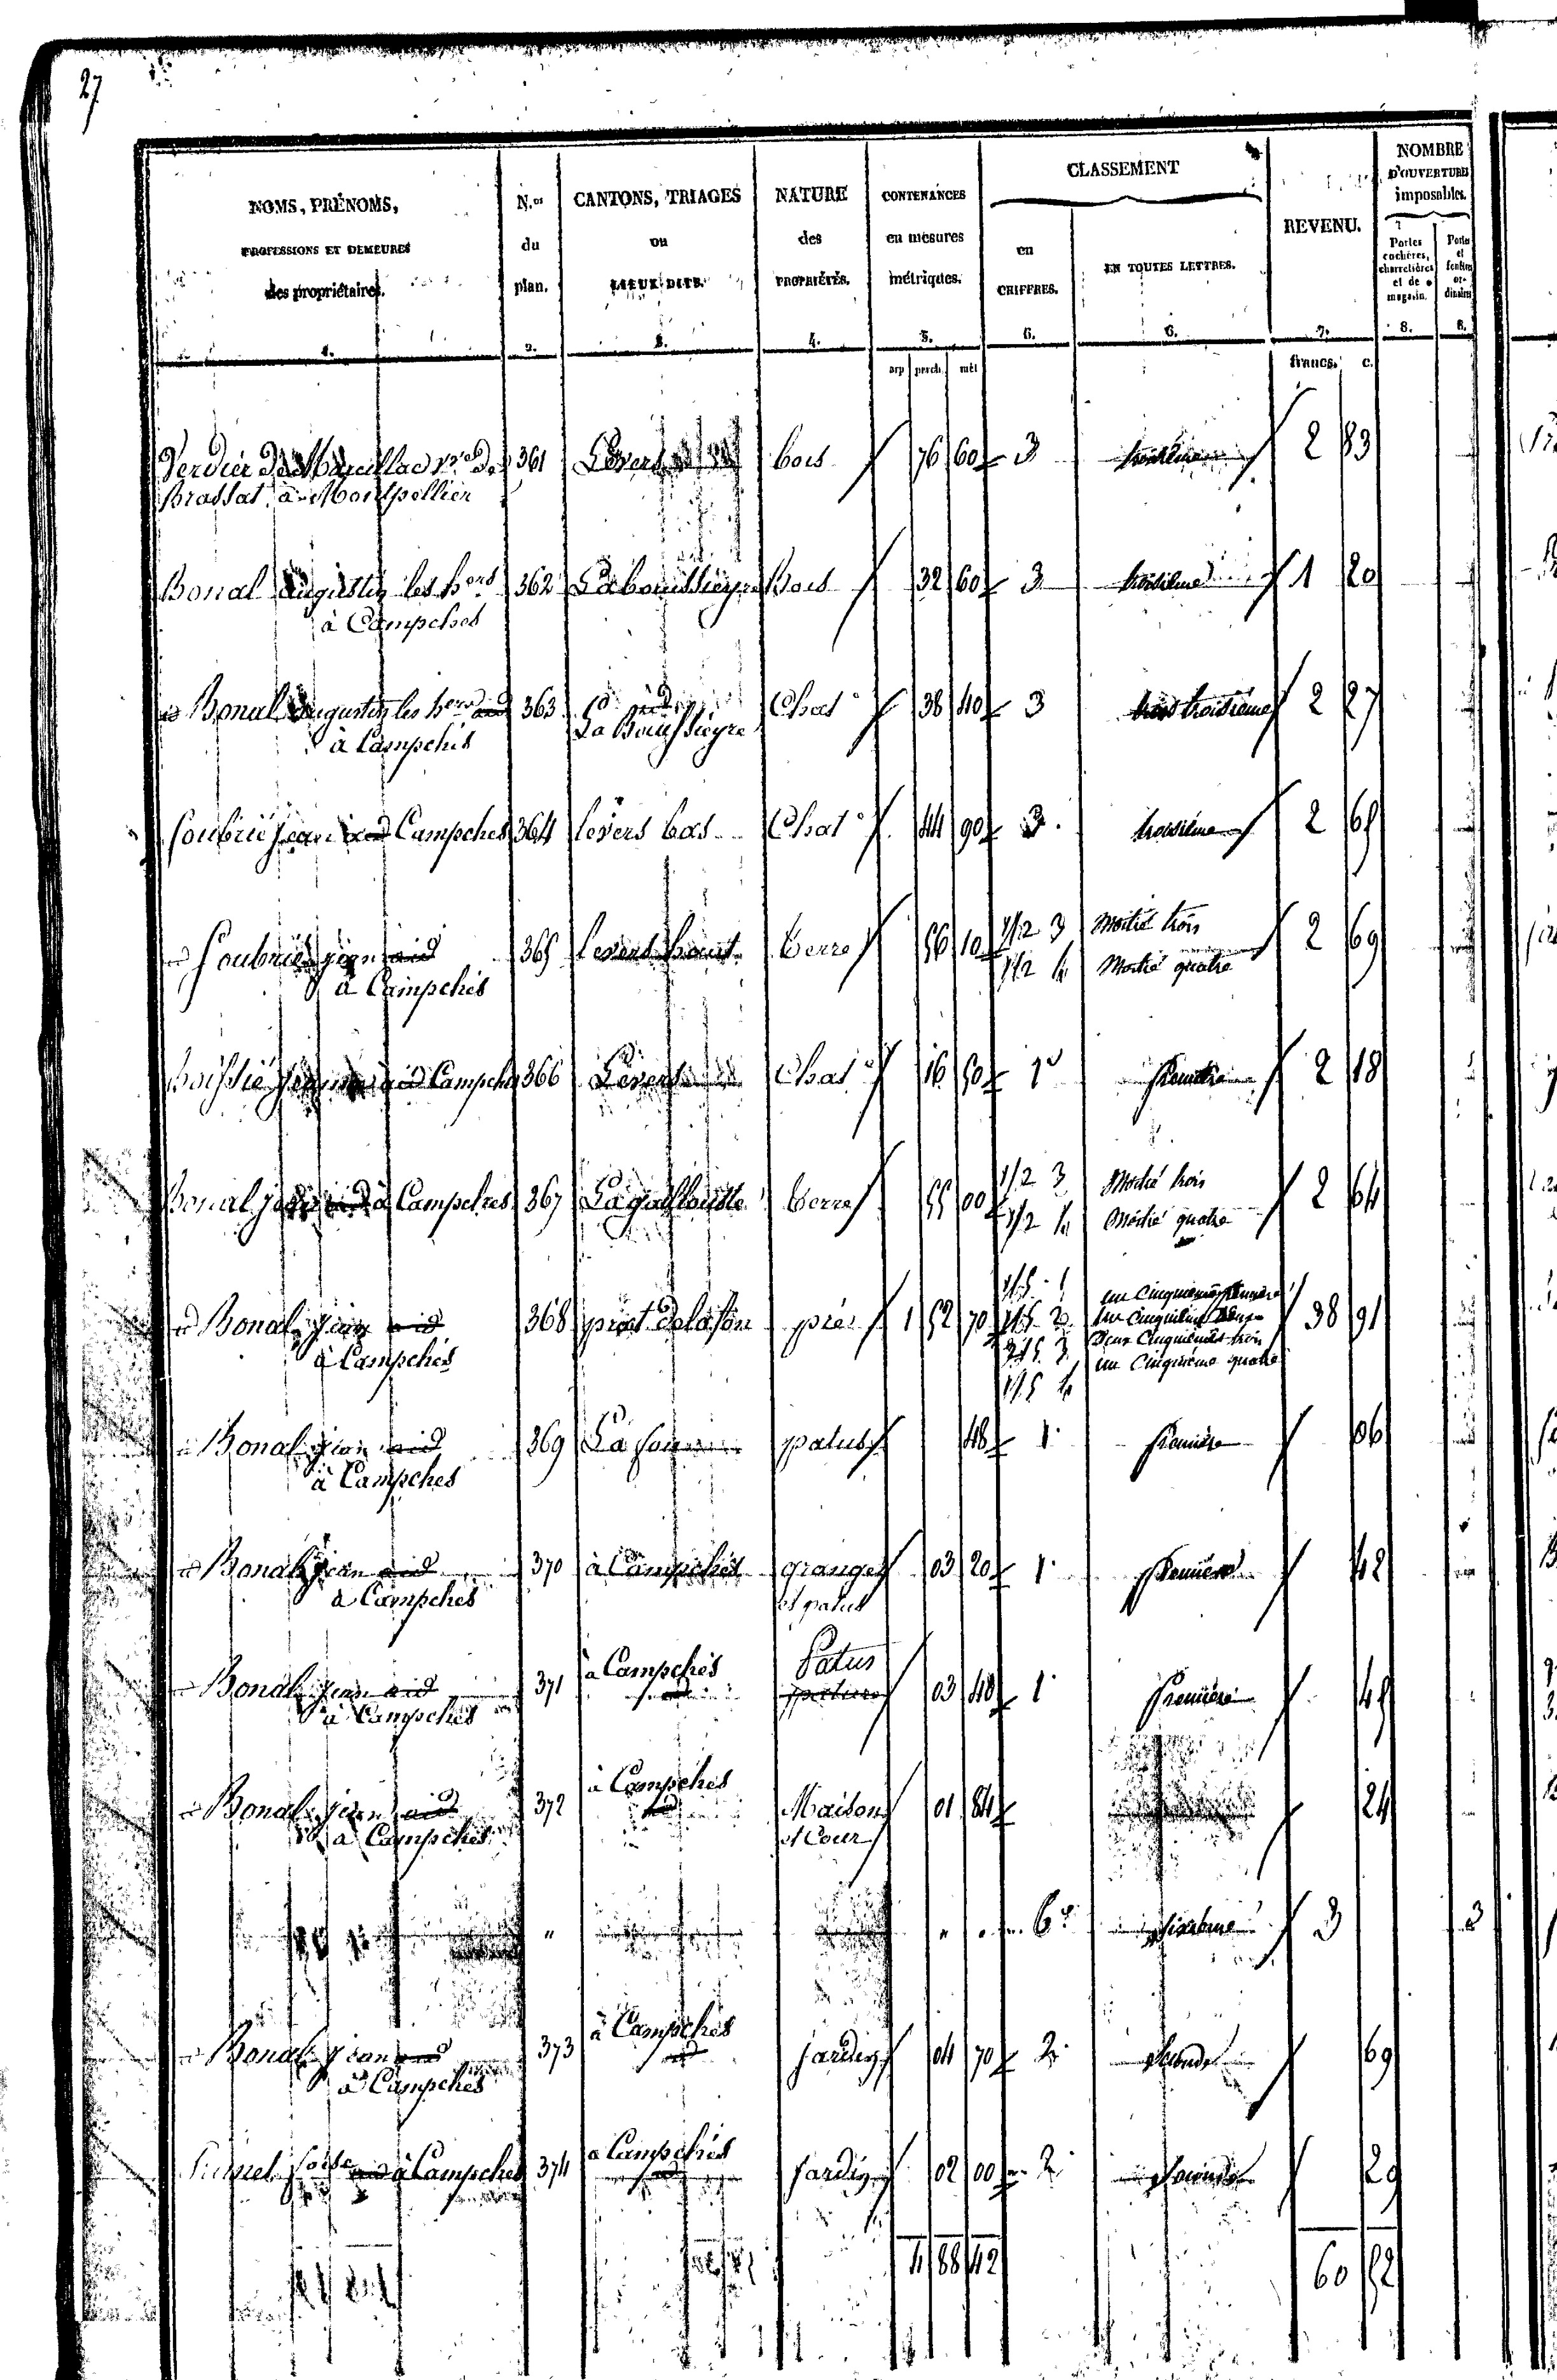 27
NOMS, PRÉNOMS, PROFESSIONS ET DEMEURES des propriétaires. 1.
N.os du plan. 2.
CANTONS, TRIAGES ou LIEUX DITS. 3.
NATURE des PROPRIÉTÉS. 4.
CONTENANCES en mesures métriques. 5.
CLASSEMENT
en CHIFFRES. 6.
EN TOUTES LETTRES. 6.
REVENU. 7.
NOMBRE D'OUVERTURES imposables.
Portes cochères, charretières et de magasin. 8.
Portes et fenêtres ordinaires 8.
arp perch. mèt
francs. c.
Verdier de Marcillac 361 Levers bois 76 60 3 troisième 2 83
Brassat à Montpellier
Bonal Augustin les hers 362 Bois 32 60 3 troisième 1 20
à Campches
Bonal Augustin les hers 363 Chat 38 40 3 troisième 2 27
à Campches La Boussieyre
Soubrié Jean Campches 364 levers bas Chat 44 90 3 troisième 2 65
Soubrié jean aid 365 levers haut terre 56 10 1/2 3 Moitié trois 2 69
à Campches 1/2 4 Moitié quatre
Boissié Campches 366 Levers Chat 16 50 1e Première 2 18
Bonal jean à Campches 367 terre 55 00 1/2 3 Moitié trois 2 64
1/2 4 Moitié quatre
Bonal jean aid 368 prat delafon près 1 52 70 1/5 1 un Cinquième Première 38 91
à Campches 1/5 2 un Cinquième Deux
2/5 3 Deux Cinquièmes trois
1/5 4 un Cinquième quatre
Bonal jean aid 369 La fon patus 48 1 Première 06
à Campches
Bonal jean aid 370 à Campches grange 03 20 1 Première 42
à Campches et patus
Bonal jean aid 371 à Campches Patus 03 48 1 Première 45
à Campches
Bonal jean aid 372 à Campches Maison 01 84 24
à Campches et Cour
" " " 6e sixième 3 3
Bonal jean 373 à Campches jardin 04 70 2 Seconde 69
à Campches
à Campches 374 à Campches Jardin 02 00 2 Seconde 29
4 88 42 60 52